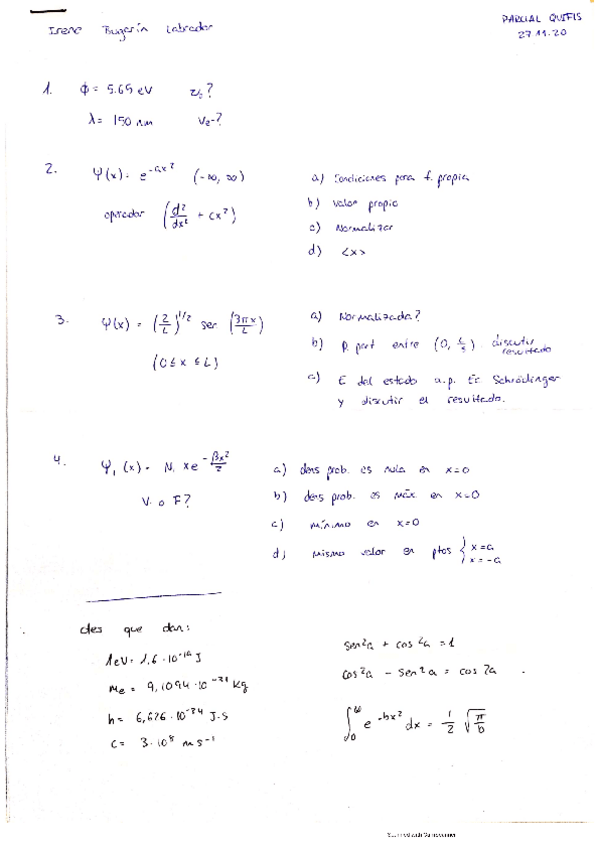 Irene Bugarín Labrador
PARCIAL QUIFIS
27.11.20
1. ϕ = 5.65 eV ν₀?
λ = 150 nm Ve-?
2. Ψ(x) = e^(-ax²) (-∞, ∞)
operador (d²/dx² + cx²)
a) Condiciones para f. propia
b) Valor propio
c) Normalizar
d) <x>
3. Ψ(x) = (2/L)^(1/2) sen (3πx/L)
(0 ≤ x ≤ L)
a) Normalizada?
b) P. part entre (0, L/3) discutir resultado
c) E del estado a.p. Ec Schrödinger
y discutir el resultado.
4. Ψ₁(x) = N₁ x e^(-βx²/2)
V. o F?
a) dens prob. es nula en x=0
b) dens prob. es máx. en x=0
c) mínimo en x=0
d) mismo valor en ptos { x=a
x=-a
ctes que dan:
1eV = 1,6 · 10⁻¹⁹ J
me = 9,1094 · 10⁻³¹ Kg
h = 6,626 · 10⁻³⁴ J·s
c = 3 · 10⁸ m s⁻¹
sen²a + cos²a = 1
cos²a - sen²a = cos 2a
∫₀^∞ e^(-bx²) dx = 1/2 √(π/b)